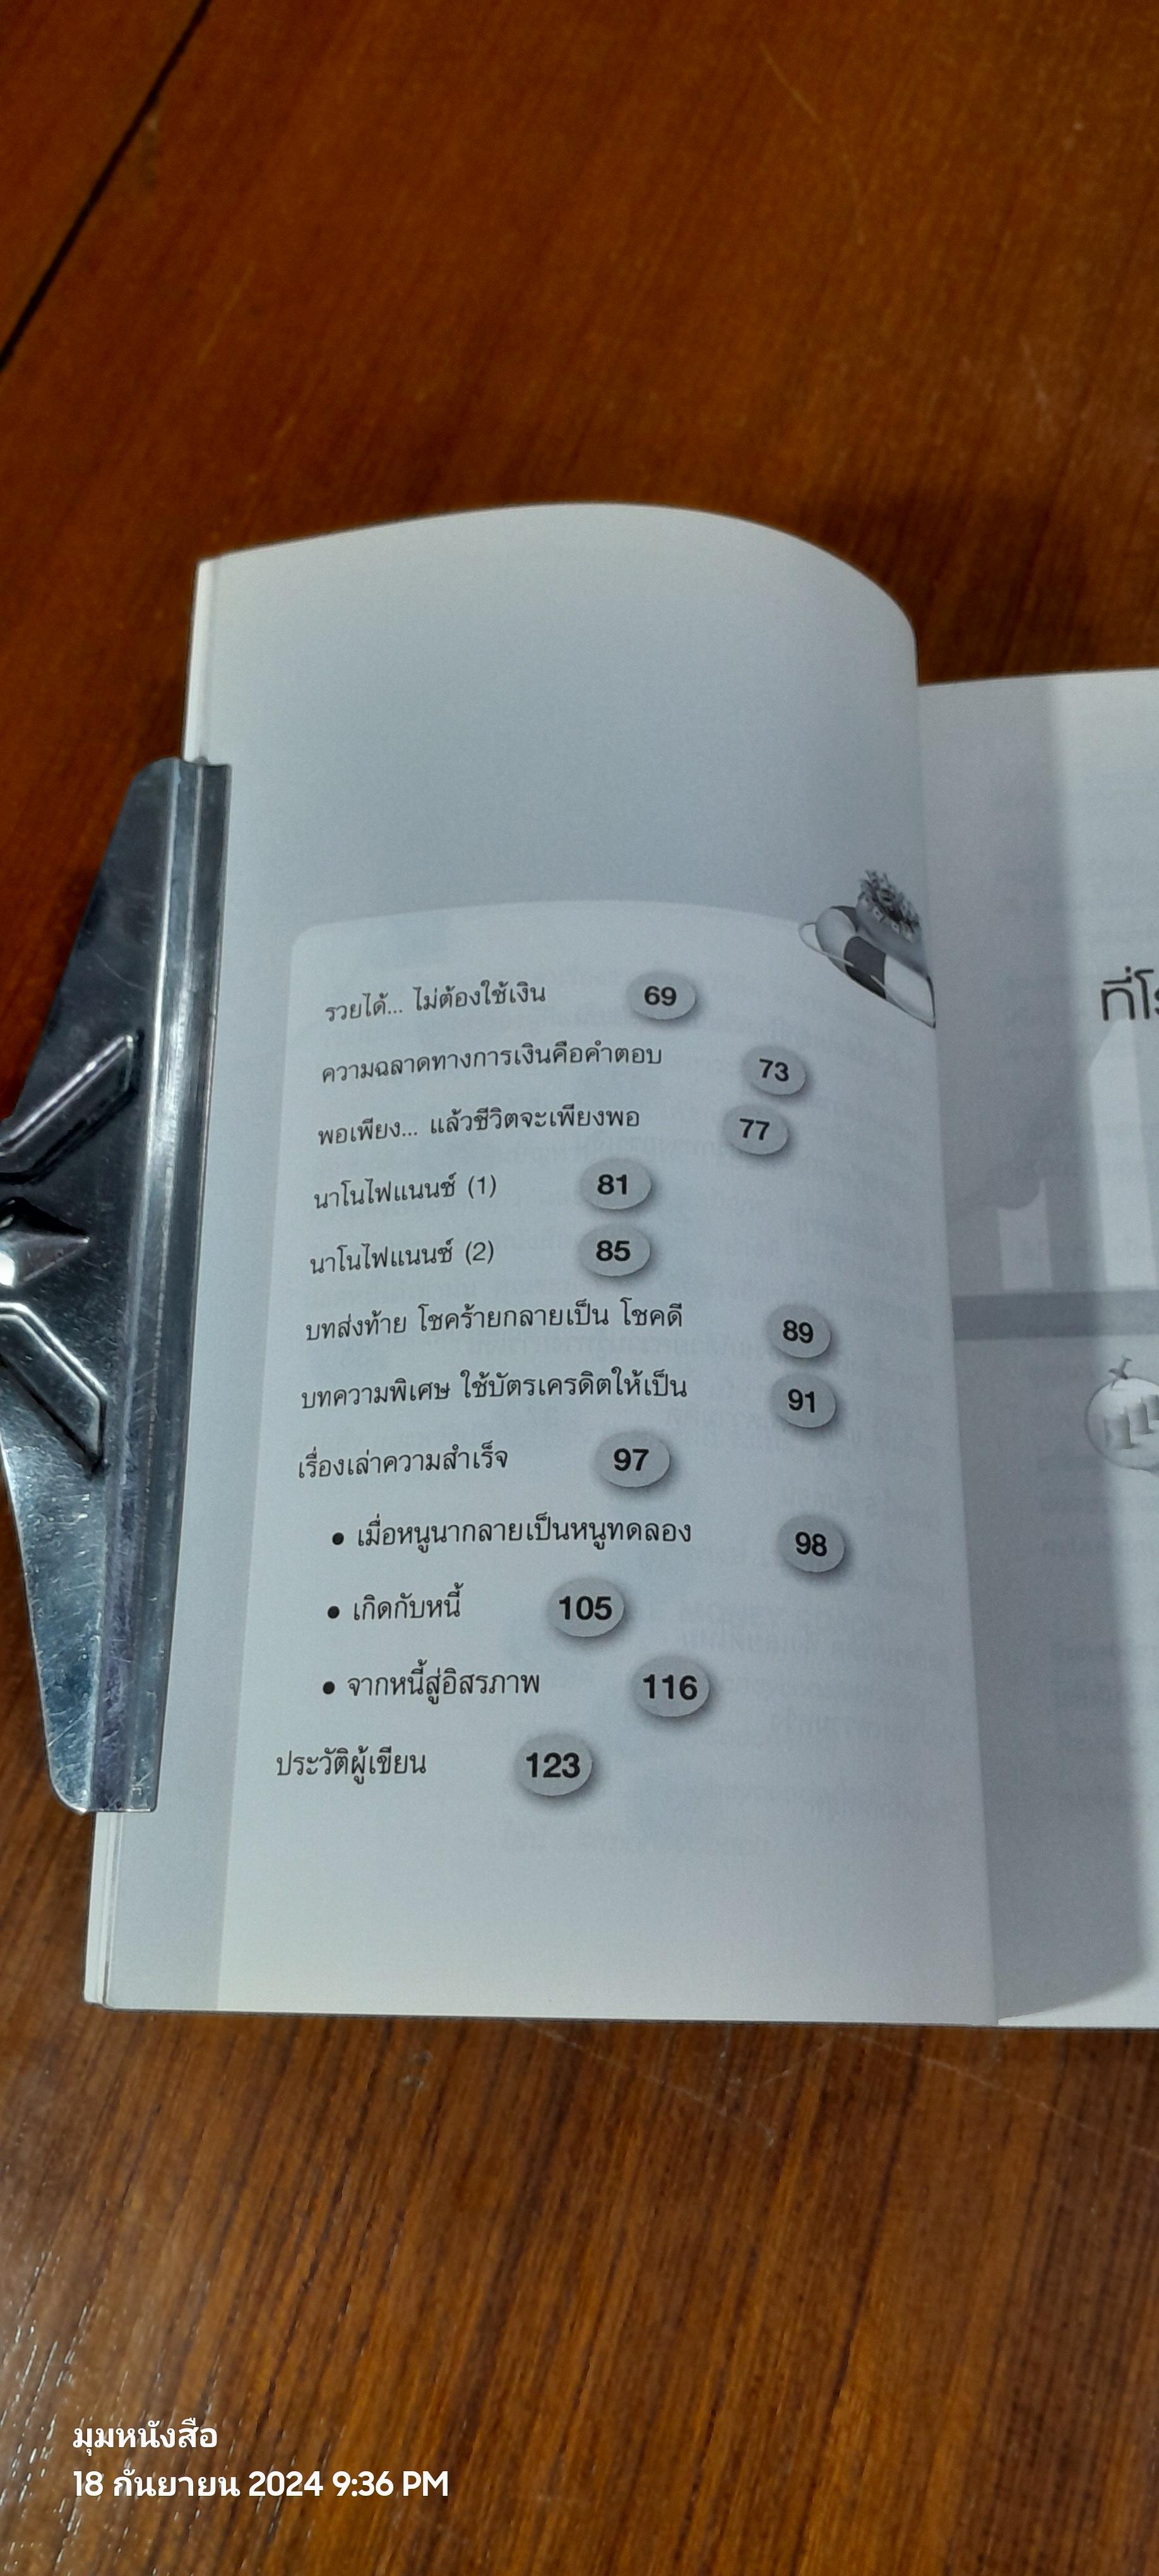 รวยได้... ไม่ต้องใช้เงิน 69
ความฉลาดทางการเงินคือคำตอบ 73
พอเพียง... แล้วชีวิตจะเพียงพอ 77
นาโนไฟแนนซ์ (1) 81
นาโนไฟแนนซ์ (2) 85
บทส่งท้าย โชคร้ายกลายเป็น โชคดี 89
บทความพิเศษ ใช้บัตรเครดิตให้เป็น 91
เรื่องเล่าความสำเร็จ 97
• เมื่อหนูนากลายเป็นหนูทดลอง 98
• เกิดกับหนี้ 105
• จากหนี้สู่อิสรภาพ 116
ประวัติผู้เขียน 123
มุมหนังสือ
18 กันยายน 2024 9:36 PM